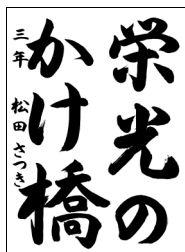 栄光の
かけ橋
三年 松田さつき